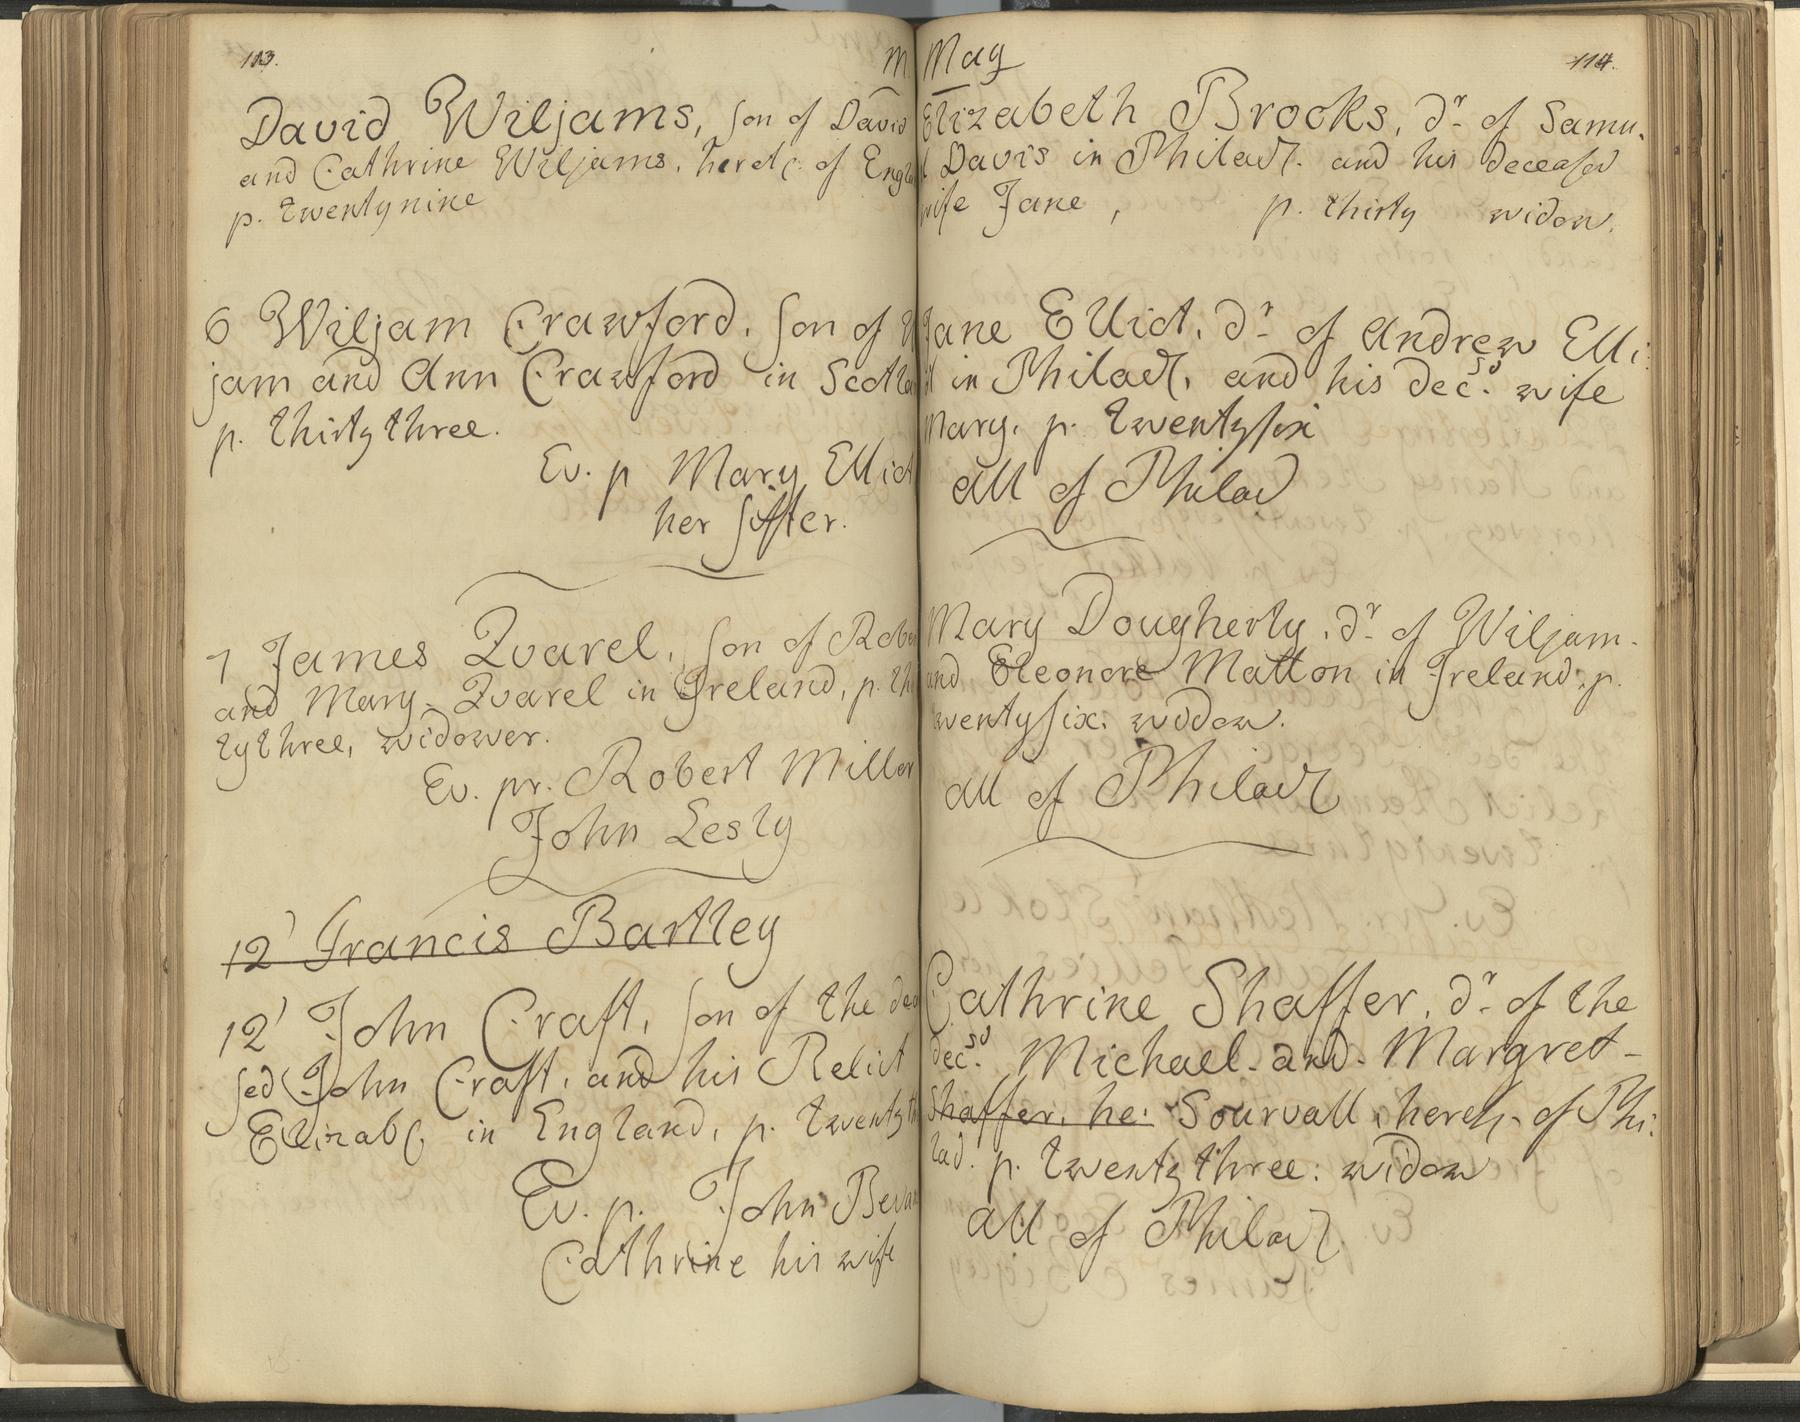 113.
M
David Wiljams, son of David
and Cathrine Wiljams, heretf. of Engla
p. twentynine
6 Wiljam Crawford, son of W
jam and Ann Crawford in Scotla
p. thirtythree.
Ev. p Mary Elliot
her sister.
7 James Qvarel, son of Rober
and Mary Qvarel in Ireland, p. thi
tythree, widower.
Ev. pr. Robert Miller
John Lesly
12' Francis Bartley
12' John Craft, son of the dec
sed John Craft, and his Relict
Elizab. in England, p. twentyt
Ev. p. John Bevan
Cathrine his wife
Mag
114.
Elizabeth Brooks, dr. of Samu.
l Davis in Philad. and his deceased
wife Jane, p. thirty widow.
Jane Elliot, dr. of Andrew Elli:
ot in Philad, and his decsd. wife
Mary, p. twentysix
all of Philad
Mary Dougherty, dr. of Wiljam.
and Eleonore Matton in Ireland, p.
twentysix: widow.
all of Philad
Cathrine Shaffer, dr. of the
decsd. Michael and Margret
Shaffer, he: Sourvall, heretf. of Phi:
lad. p. twentythree: widow
all of Philad